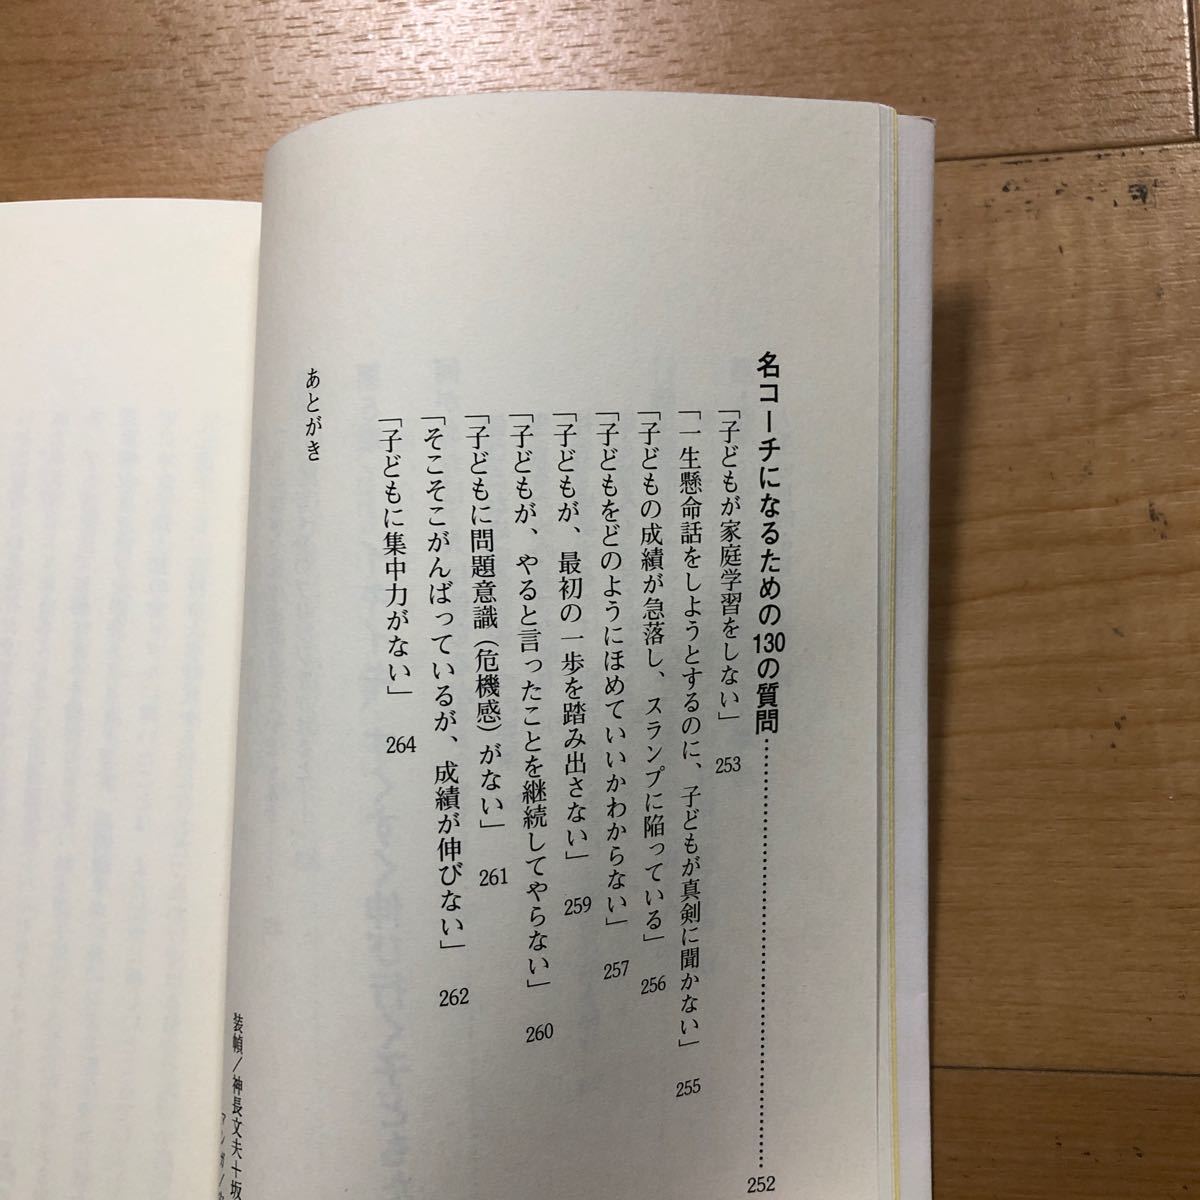 名コーチになるための130の質問……………………………252
「子どもが家庭学習をしない」 253
「一生懸命話をしようとするのに、子どもが真剣に聞かない」 255
「子どもの成績が急落し、スランプに陥っている」 256
「子どもをどのようにほめていいかわからない」 257
「子どもが、最初の一歩を踏み出さない」 259
「子どもが、やると言ったことを継続してやらない」 260
「子どもに問題意識（危機感）がない」 261
「そこそこがんばっているが、成績が伸びない」 262
「子どもに集中力がない」 264
あとがき
装幀／神長文夫＋坂